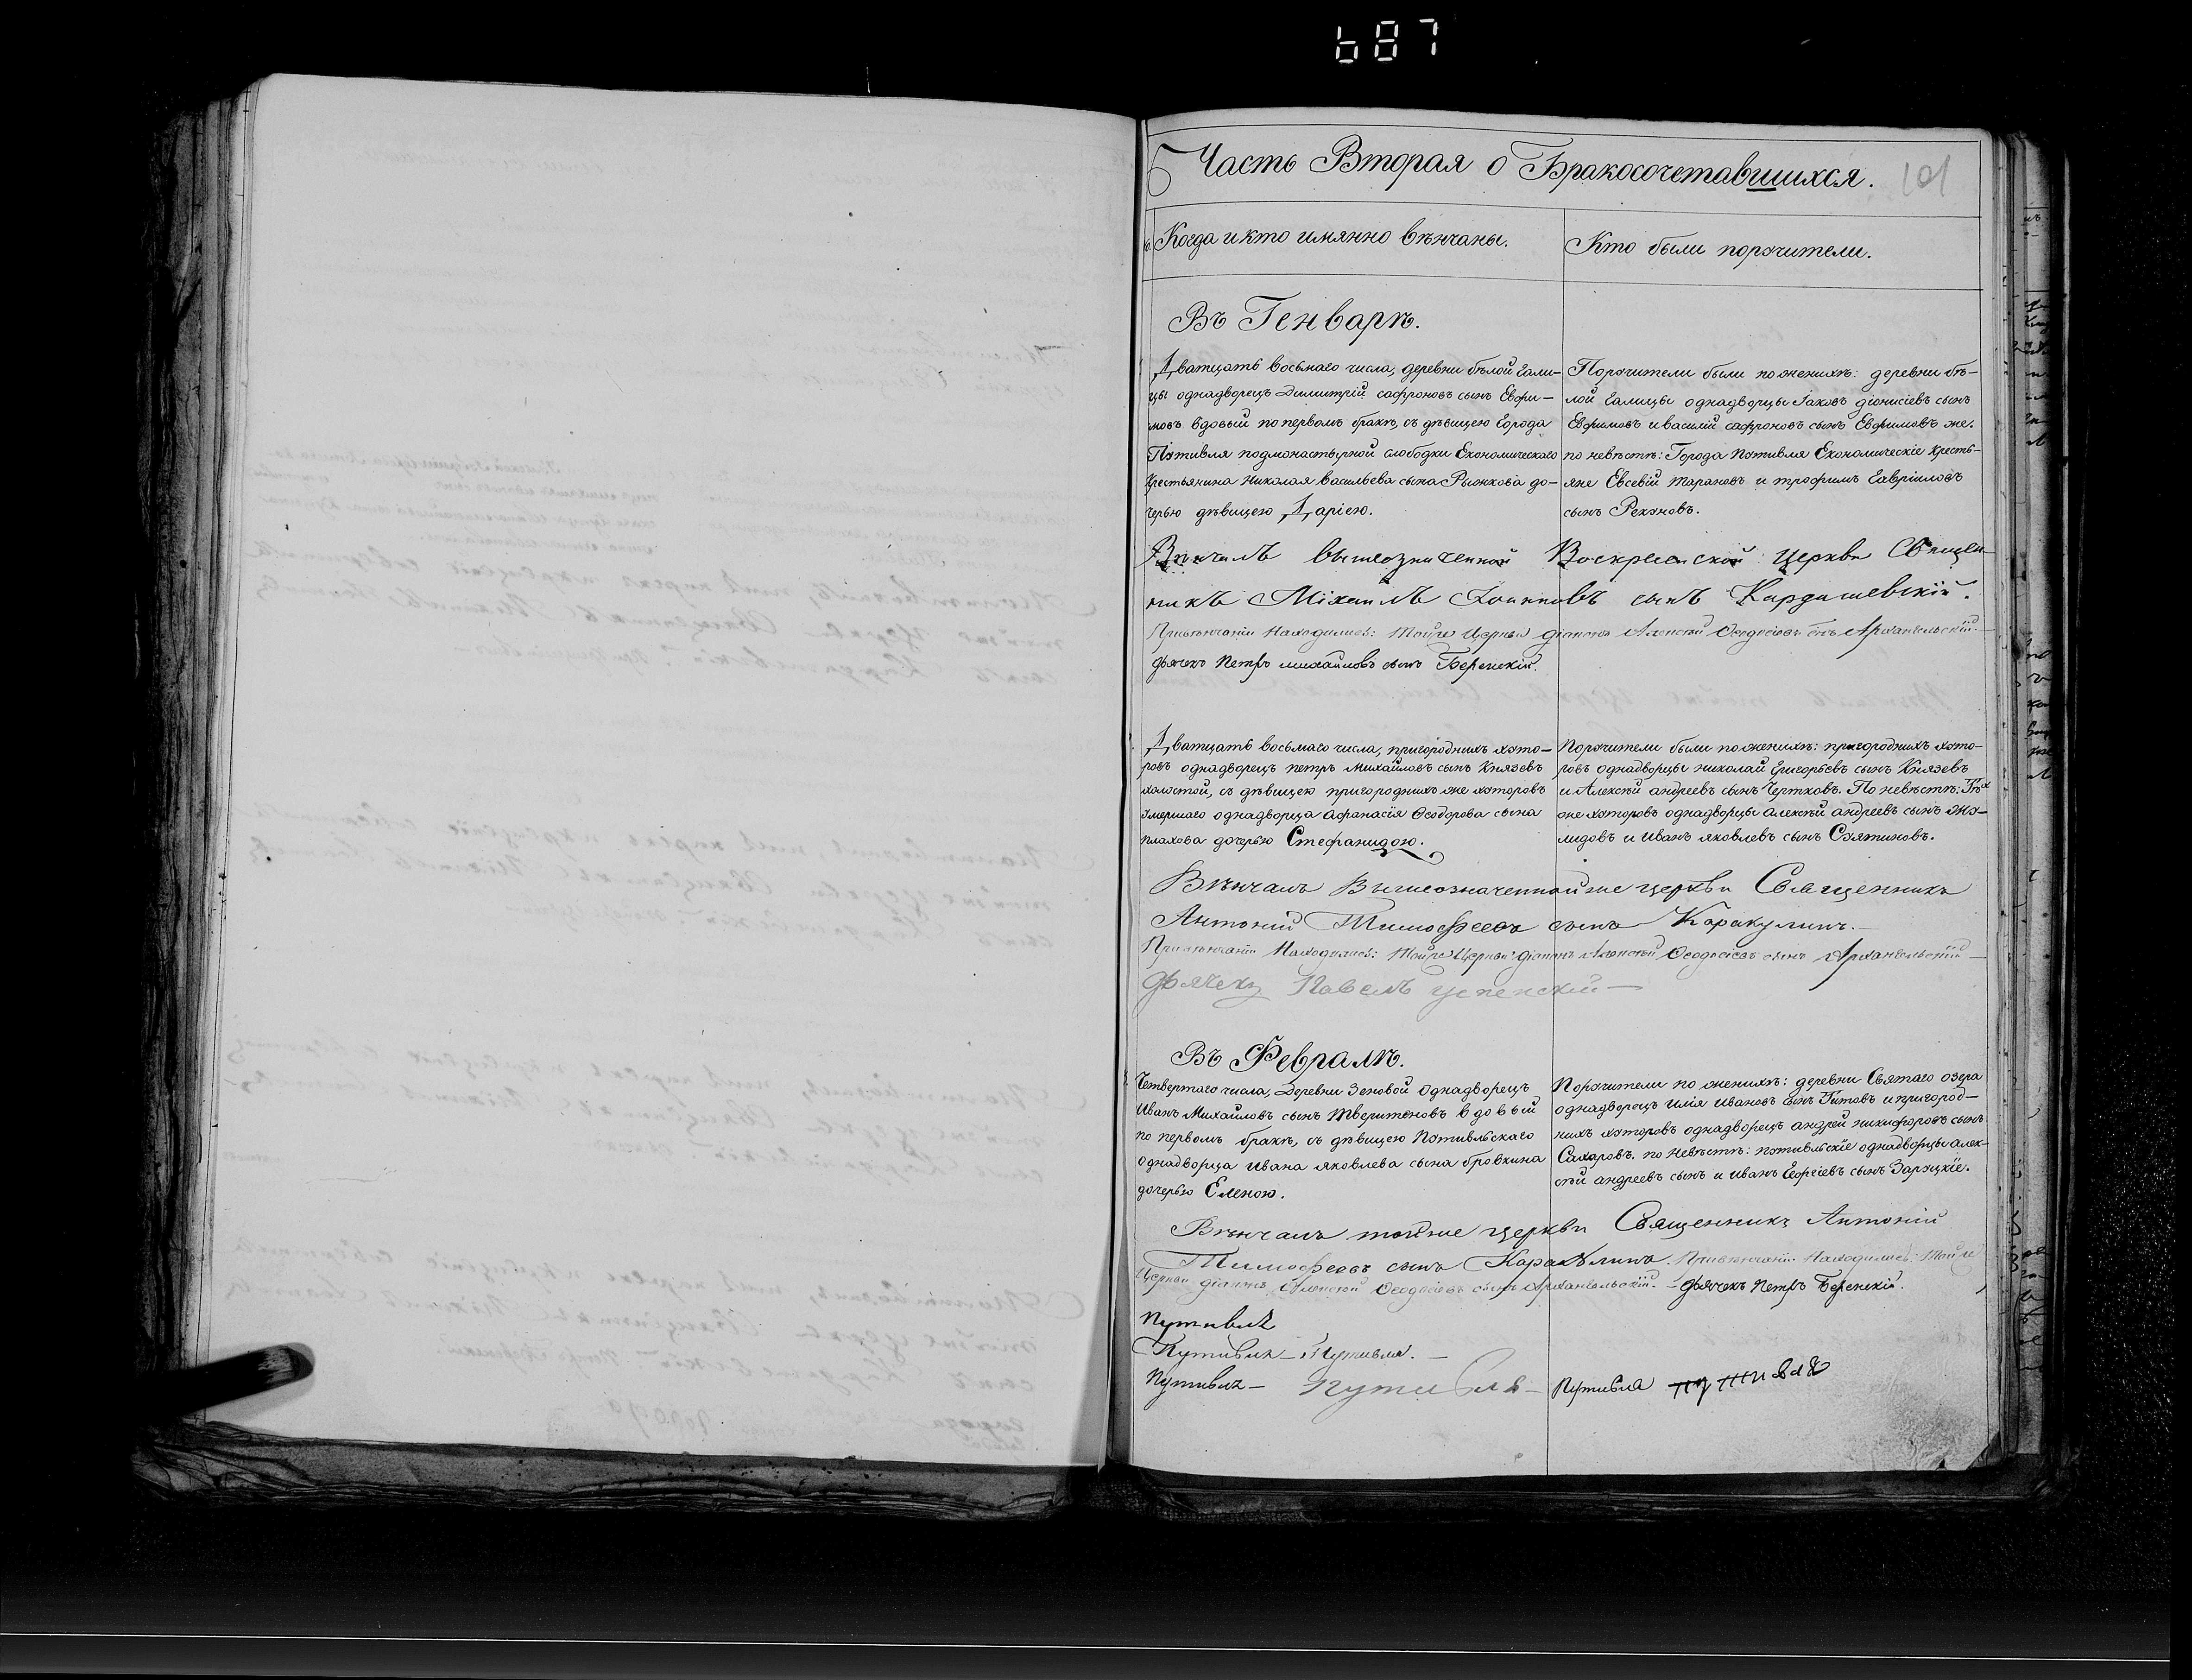 687
Часть Вторая о Бракосочетавшихся. 101
Когда и кто имянно вѣнчаны.
Кто были порꙋчители.
Въ Генварѣ.
Дватцать восьмаго числа, деревни бѣлой гали-
цы однадворецъ Димитрій сафроновъ сынъ Ефи-
мовъ вдовый по первомъ бракѣ, съ дѣвицею города
Пꙋтивля подмонастырной слободки Економическаго
крестьянина Николая васильева сына Рыжкова до-
черью дѣвицею Даріею.
Порꙋчители были по женихѣ: деревни бѣ-
лой галицы однадворцы Іаковъ діонисіевъ сынъ
Ефимовъ и василій сафроновъ сынъ Ефимовъ же.
по невѣстѣ: Города Пꙋтивля Економическіе кресть-
яне Евсевій Тарановъ и трофимъ Гавріиловъ
сынъ Рекꙋновъ.
Вѣнчалъ вышеозначенной Воскресенской церкви Священ-
никъ Міхаилъ Іоанновъ сынъ Кардашевскій.
При вѣнчаніи Находились: Тойже Церкви діаконъ Алексѣй Ѳеодосіевъ сынъ Архангельскій.
дьячекъ Петръ михайловъ сынъ Беренскій.
Дватцать восьмаго числа, пригородныхъ хꙋто-
ровъ однадворецъ петръ Михайловъ сынъ Князевъ
холостой, съ дѣвицею пригородныхъ же хꙋторовъ
ꙋмершаго однадворца Афанасія Ѳеодорова сына
плахова дочерью Стефанидою.
Порꙋчители были по женихѣ: пригородныхъ хꙋто-
ровъ однадворцы николай Григорьевъ сынъ Князевъ
и Алексѣй андреевъ сынъ Чертковъ. По невѣстѣ: Тѣх
же хꙋторовъ однадворцы алексѣй андреевъ сынъ
и Иванъ яковлевъ сынъ Сꙋятиновъ.
Вѣнчалъ Вышеозначенной же церкви Священникъ
Антоній Тимофеевъ сынъ Каракулинъ.
При вѣнчаніи Находились: Тойже Церкви діаконъ Алексѣй Ѳеодосіевъ сынъ Архангельскій
дьячекъ Павелъ успенскій
Въ Февралѣ.
Четвертаго числа, Деревни Зеновой Однадворецъ
Иванъ Михайловъ сынъ Тверитеновъ вдовый
по первомъ бракѣ, съ дѣвицею Пꙋтивльскаго
однадворца Ивана яковлева сына бровкина
дочерью Еленою.
Порꙋчители по женихѣ: деревни Святаго озера
однадворецъ Илія Ивановъ сынъ Титовъ и пригород-
ныхъ хꙋторовъ однадворецъ андрей никифоровъ сынъ
Сахаровъ. по невѣстѣ: пꙋтивльскіе однадворцы алек-
сѣй андреевъ сынъ и Иванъ Георгіевъ сынъ Зарꙋцкіе.
Вѣнчалъ тойже церкви Священникъ Антоній
Тимофеевъ сынъ Каракꙋлинъ. При вѣнчаніи Находились: Тойже
Церкви діаконъ Алексѣй Ѳеодосіевъ сынъ Архангельскій. - дьячекъ Петръ Беренскій.
Путивля
Путивля - Путивля. -
Путивля - Путивля - Путивля Путивля